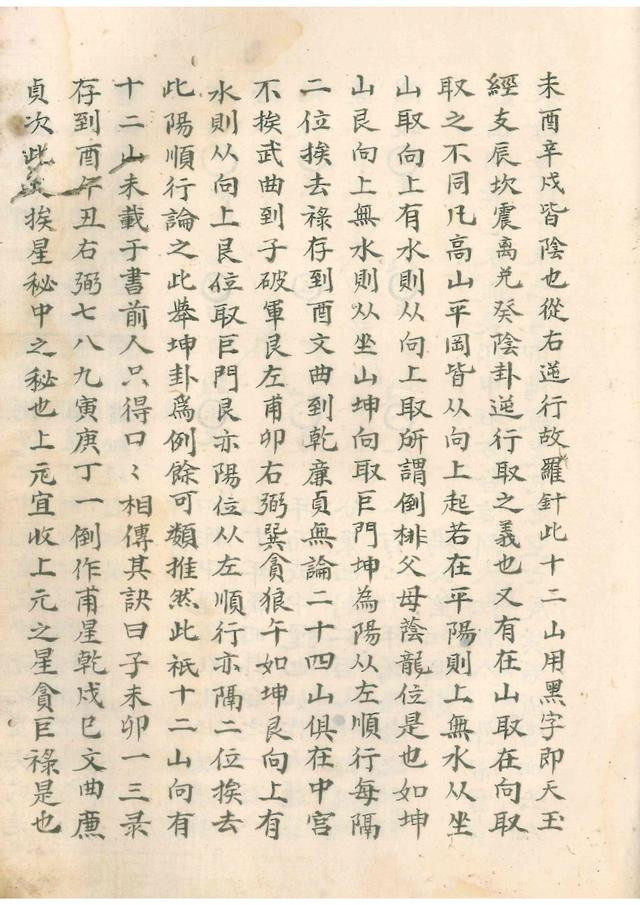 未酉辛戍皆陰也從右逆行故羅針此十二山用黑字即天玉
經支辰坎震离兑癸陰卦逆行取之義也又有在山取在向取
取之不同凢高山平岡皆从向上起若在平陽則上無水从坐
山取向上有水則从向上取所謂倒排父母蔭龍位是也如坤
山艮向上無水則从坐山坤向取巨門坤為陽从左順行每隔
二位挨去祿存到酉文曲到乾廉貞無論二十四山俱在中宮
不挨武曲到子破軍艮左甫卯右弼巽貪狼午如坤艮向上有
水則从向上艮位取巨門艮亦陽位从左順行亦隔二位挨去
此陽順行論之此舉坤卦爲例餘可類推然此祇十二山向有
十二山未載于書前人只得口〻相傳其訣曰子未卯一三录
存到酉午丑右弼七八九寅庚丁一倒作甫星乾戍巳文曲廉
貞次此挨星秘中之秘也上元宜收上元之星貪巨祿是也